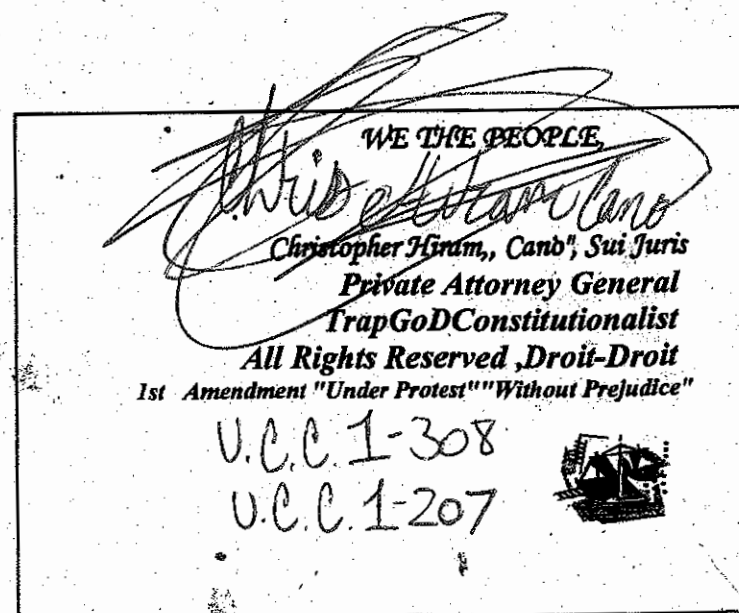 WE THE PEOPLE,
Chris Hiram Cano
Christopher Hiram,, Cano", Sui Juris
Private Attorney General
TrapGoDConstitutionalist
All Rights Reserved ,Droit-Droit
1st Amendment "Under Protest""Without Prejudice"
U.C.C. 1-308
U.C.C. 1-207